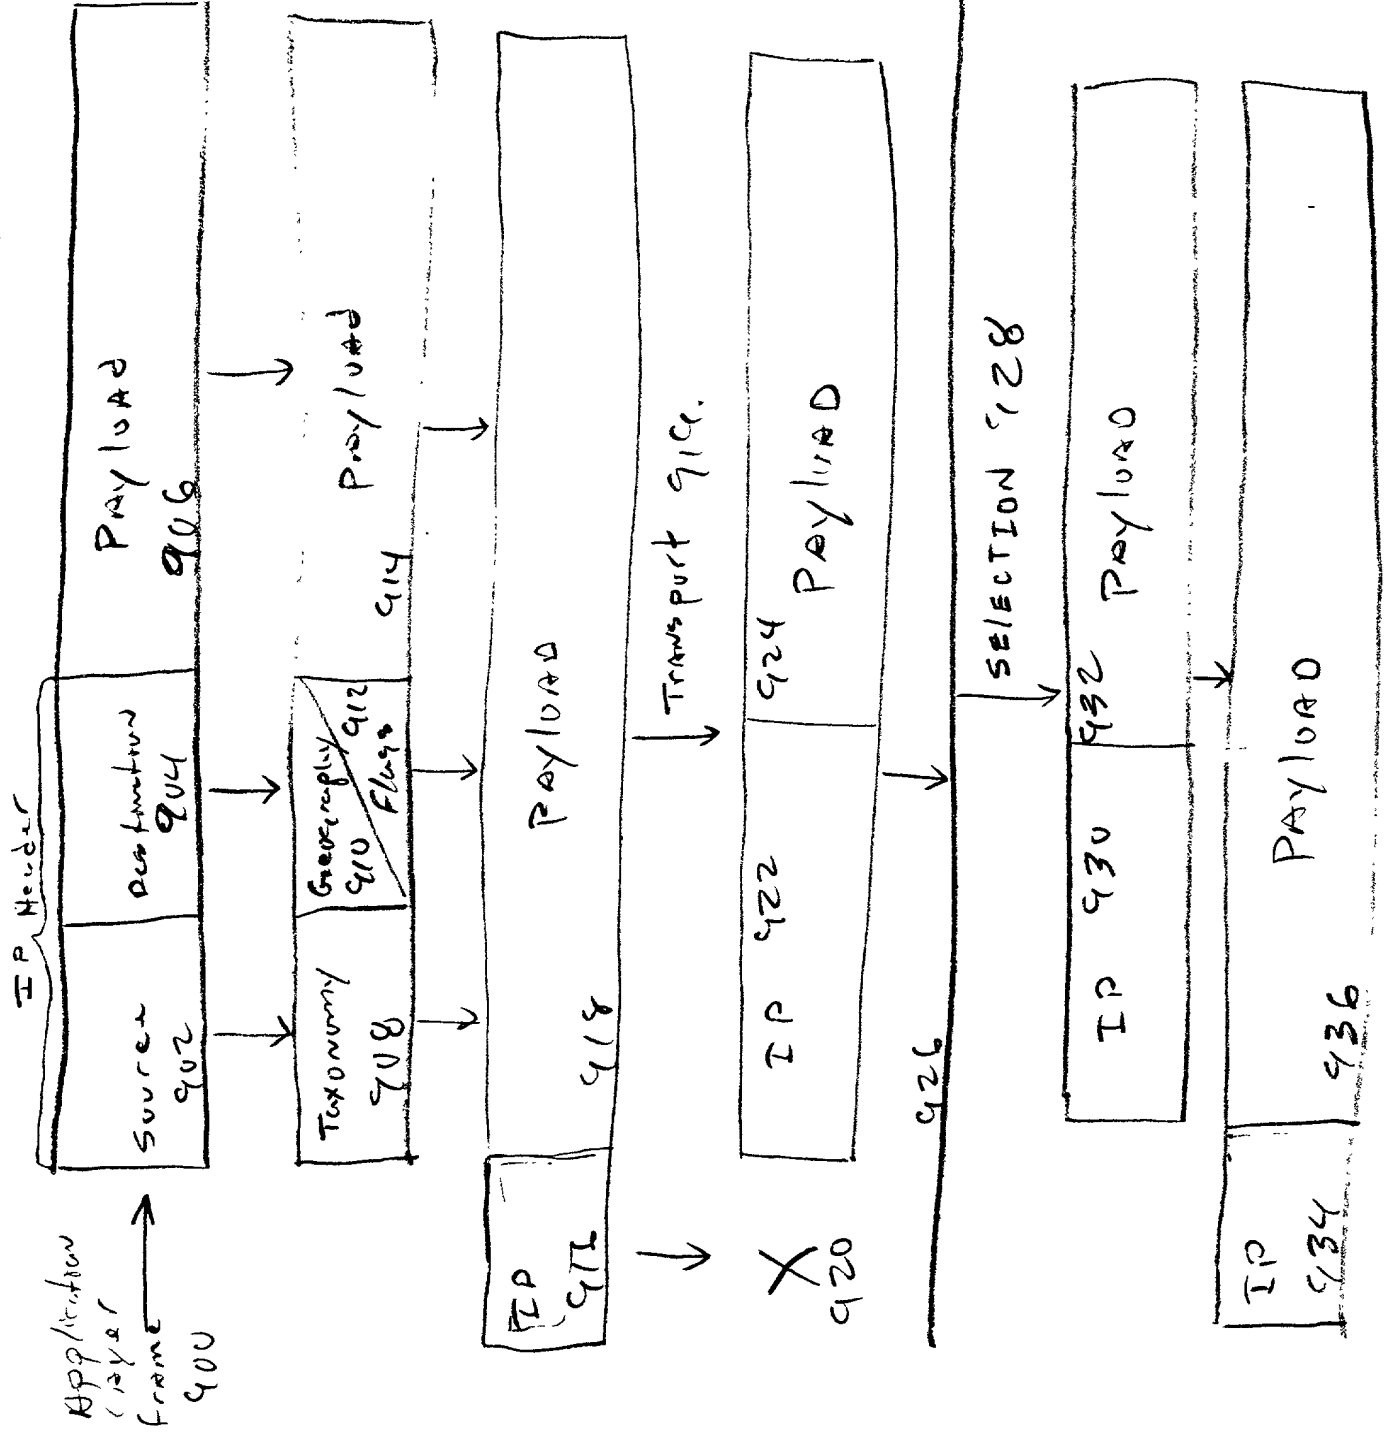 IP Header
Application
Layer
frame
900
Source
902
Destination
904
Payload
906
Taxonomy
908
Geography
910
912
Flags
914
Payload
IP
918
Payload
Transport
X
920
IP 922
924
Payload
926
SELECTION 928
IP 930
932
Payload
IP
934
936
Payload